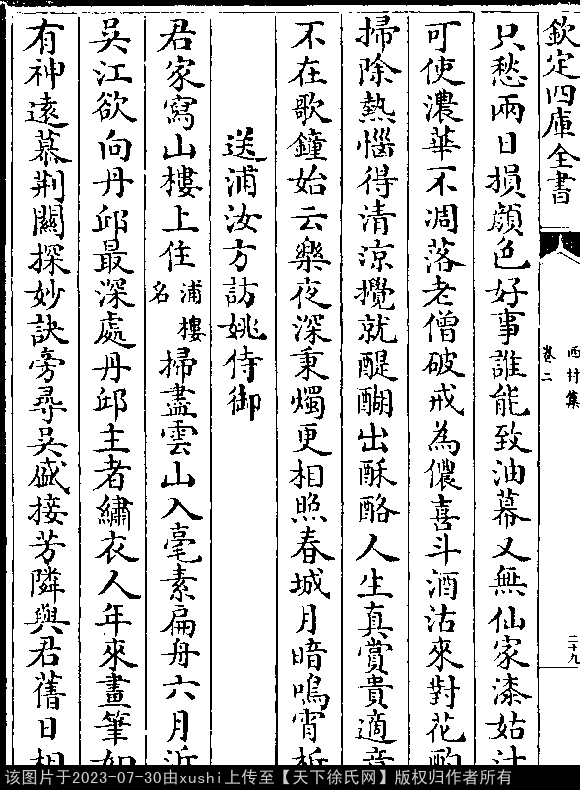 欽定四庫全書
西村集
卷二
二十九
只愁兩日損顔色好事誰能致油幕又無仙家漆姑汁
可使濃華不凋落老僧破戒為儂喜斗酒沽來對花酌
掃除熱惱得清涼攪就醍醐出酥酪人生真賞貴適意
不在歌鐘始云樂夜深秉燭更相照春城月暗鳴宵柝
送浦汝方訪姚侍御
君家寫山樓上住浦樓名掃盡雲山入毫素扁舟六月近
吳江欲向丹邱最深處丹邱主者繡衣人年來畫筆如
有神遠慕荆關探妙訣旁尋吳盛接芳隣與君舊日相
该图片于2023-07-30由xushi上传至【天下徐氏网】版权归作者所有